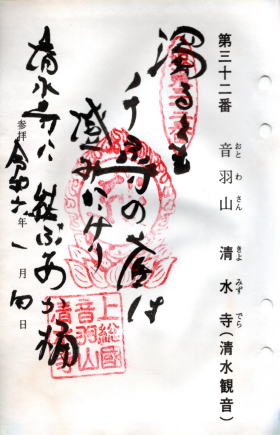 第三十二番 音羽山 清水寺(清水観音)
おとわさん きよみずでら
濁るとも
千尋の底は
澄みにけり
清水寺に 結ぶあか桶
参拝 令和六年 一月 日
上総國
音羽山
清水寺